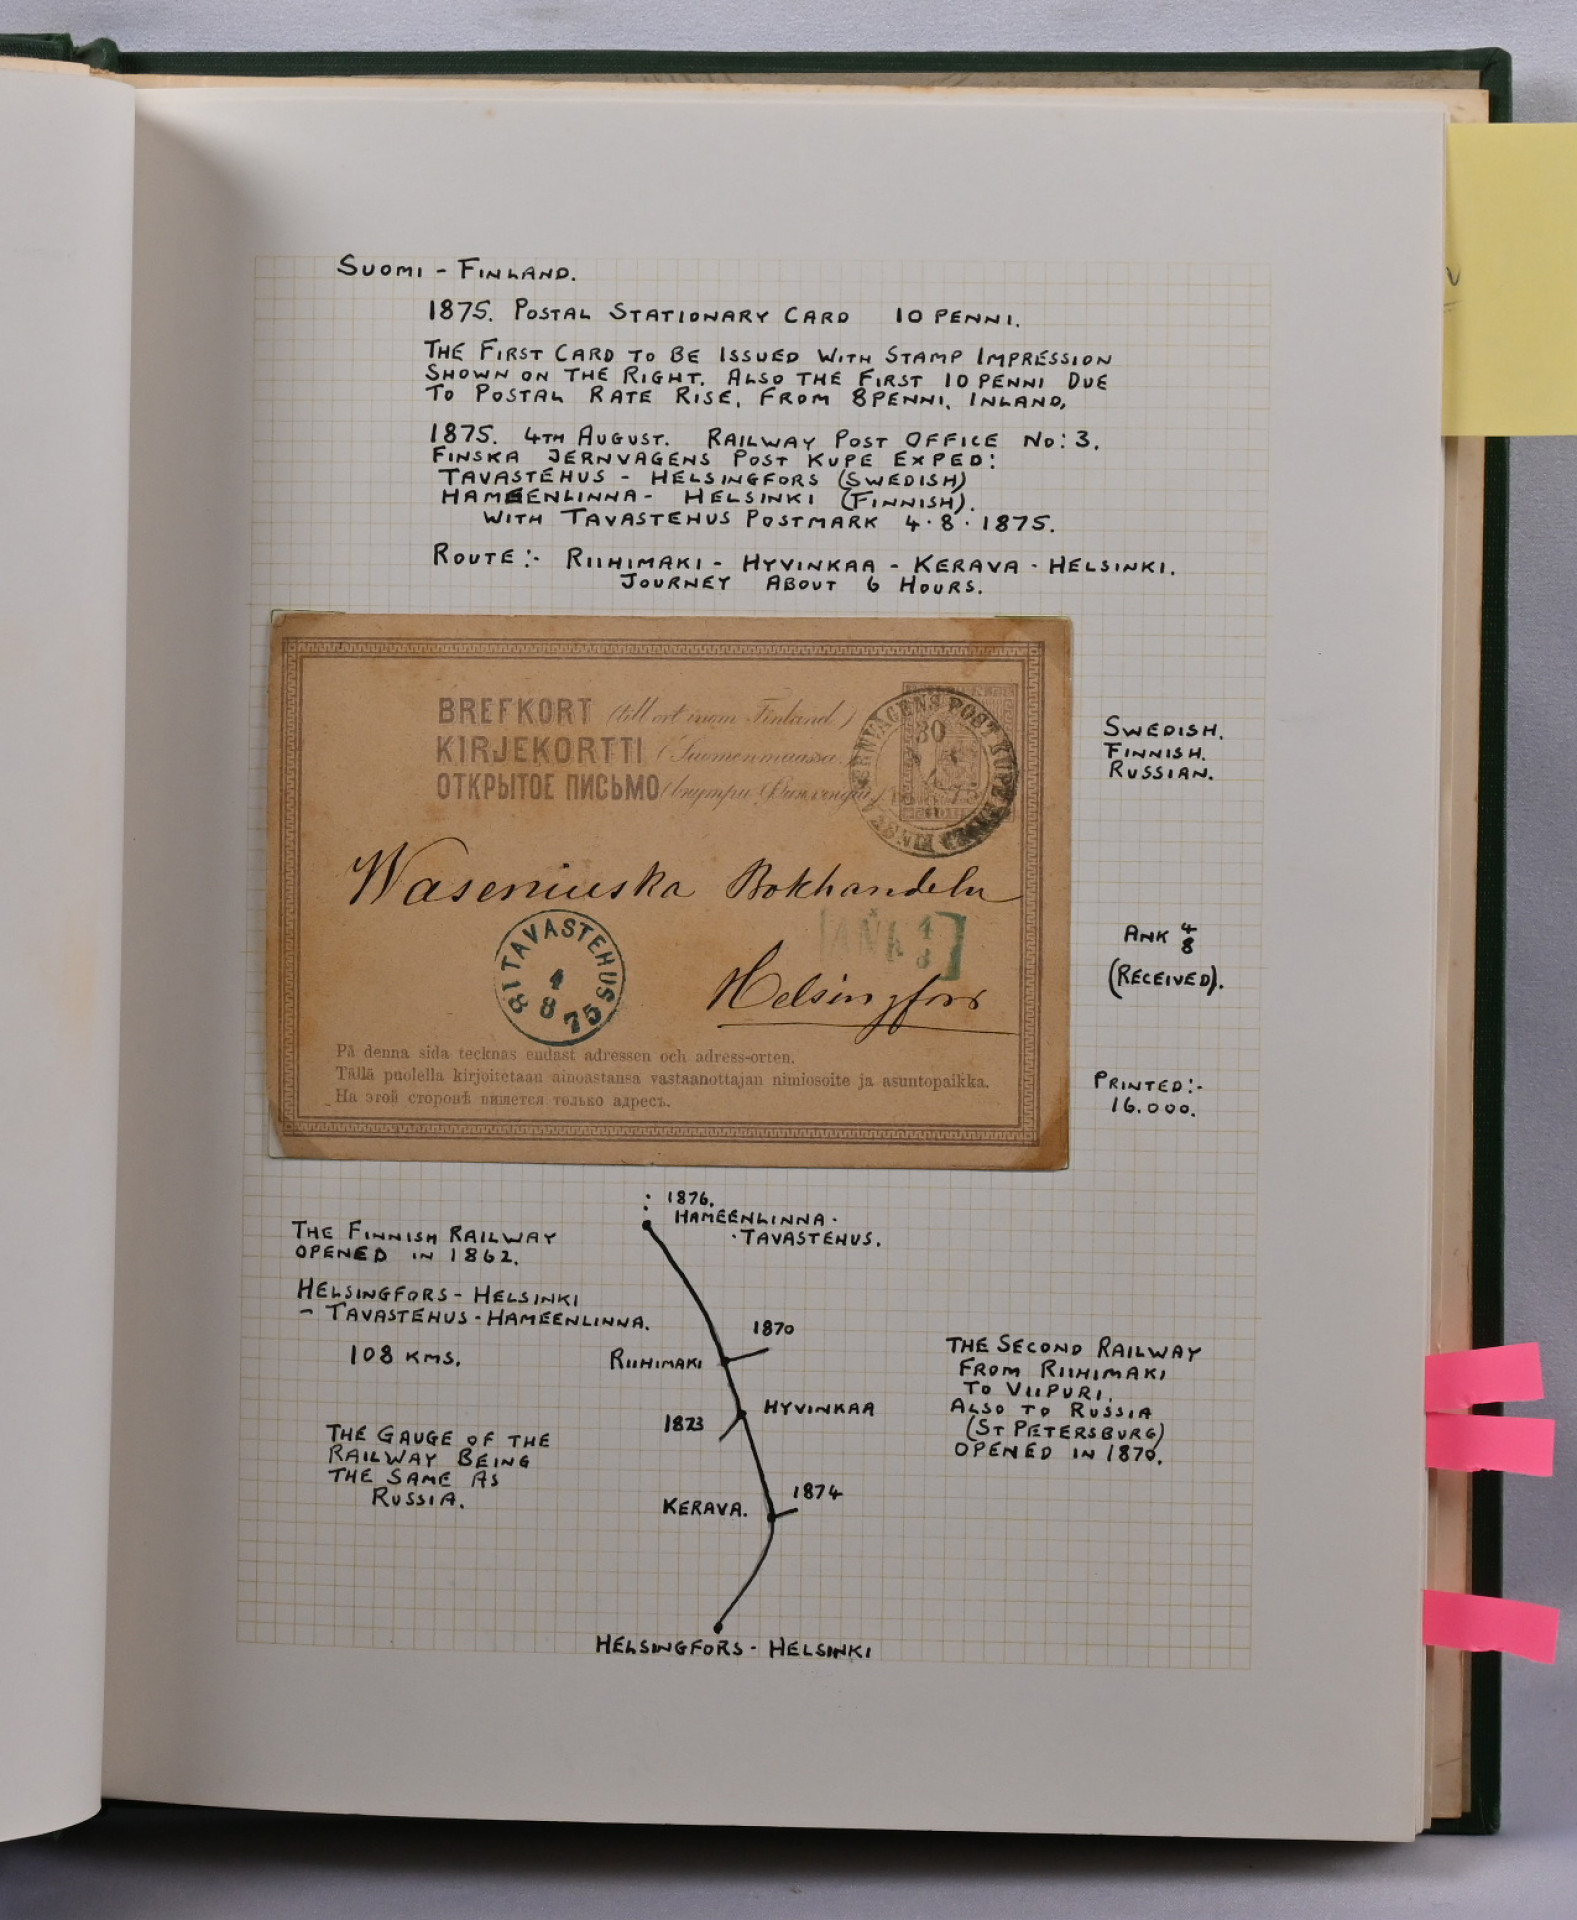 SUOMI - FINLAND.
1875. POSTAL STATIONARY CARD 10 PENNI.
THE FIRST CARD TO BE ISSUED WITH STAMP IMPRESSION
SHOWN ON THE RIGHT. ALSO THE FIRST 10 PENNI DUE
TO POSTAL RATE RISE, FROM 8PENNI. INLAND,
1875. 4TH AUGUST. RAILWAY POST OFFICE NO: 3.
FINSKA JERNVAGENS POST KUPE EXPED:
TAVASTEHUS - HELSINGFORS (SWEDISH)
HAMEENLINNA - HELSINKI (FINNISH).
WITH TAVASTEHUS POSTMARK 4.8.1875.
ROUTE:- RIIHIMAKI - HYVINKAA - KERAVA - HELSINKI.
JOURNEY ABOUT 6 HOURS.
BREFKORT (till ort inom Finland)
KIRJEKORTTI (Suomenmaassa)
ОТКРЫТОЕ ПИСЬМО (внутри Финляндіи)
JERNVÄGENS POST KUPE EXPED FINSKA
30
SWEDISH.
FINNISH.
RUSSIAN.
Waseniuska Bokhandeln
ANK 4/8
Helsingfors
TAVASTEHUS
4
8
75
ANK 4/8
(RECEIVED).
På denna sida tecknas endast adressen och adress-orten.
Tällä puolella kirjoitetaan ainoastansa vastaanottajan nimiosoite ja asuntopaikka.
На этой сторонѣ пишется только адресъ.
PRINTED:-
16.000.
1876.
HAMEENLINNA -
- TAVASTEHUS.
THE FINNISH RAILWAY
OPENED IN 1862.
HELSINGFORS - HELSINKI
- TAVASTEHUS - HAMEENLINNA.
108 KMS.
1870
RIIHIMAKI
HYVINKAA
1873
THE GAUGE OF THE
RAILWAY BEING
THE SAME AS
RUSSIA.
THE SECOND RAILWAY
FROM RIIHIMAKI
TO VIIPURI.
ALSO TO RUSSIA
(ST PETERSBURG)
OPENED IN 1870.
1874
KERAVA.
HELSINGFORS - HELSINKI